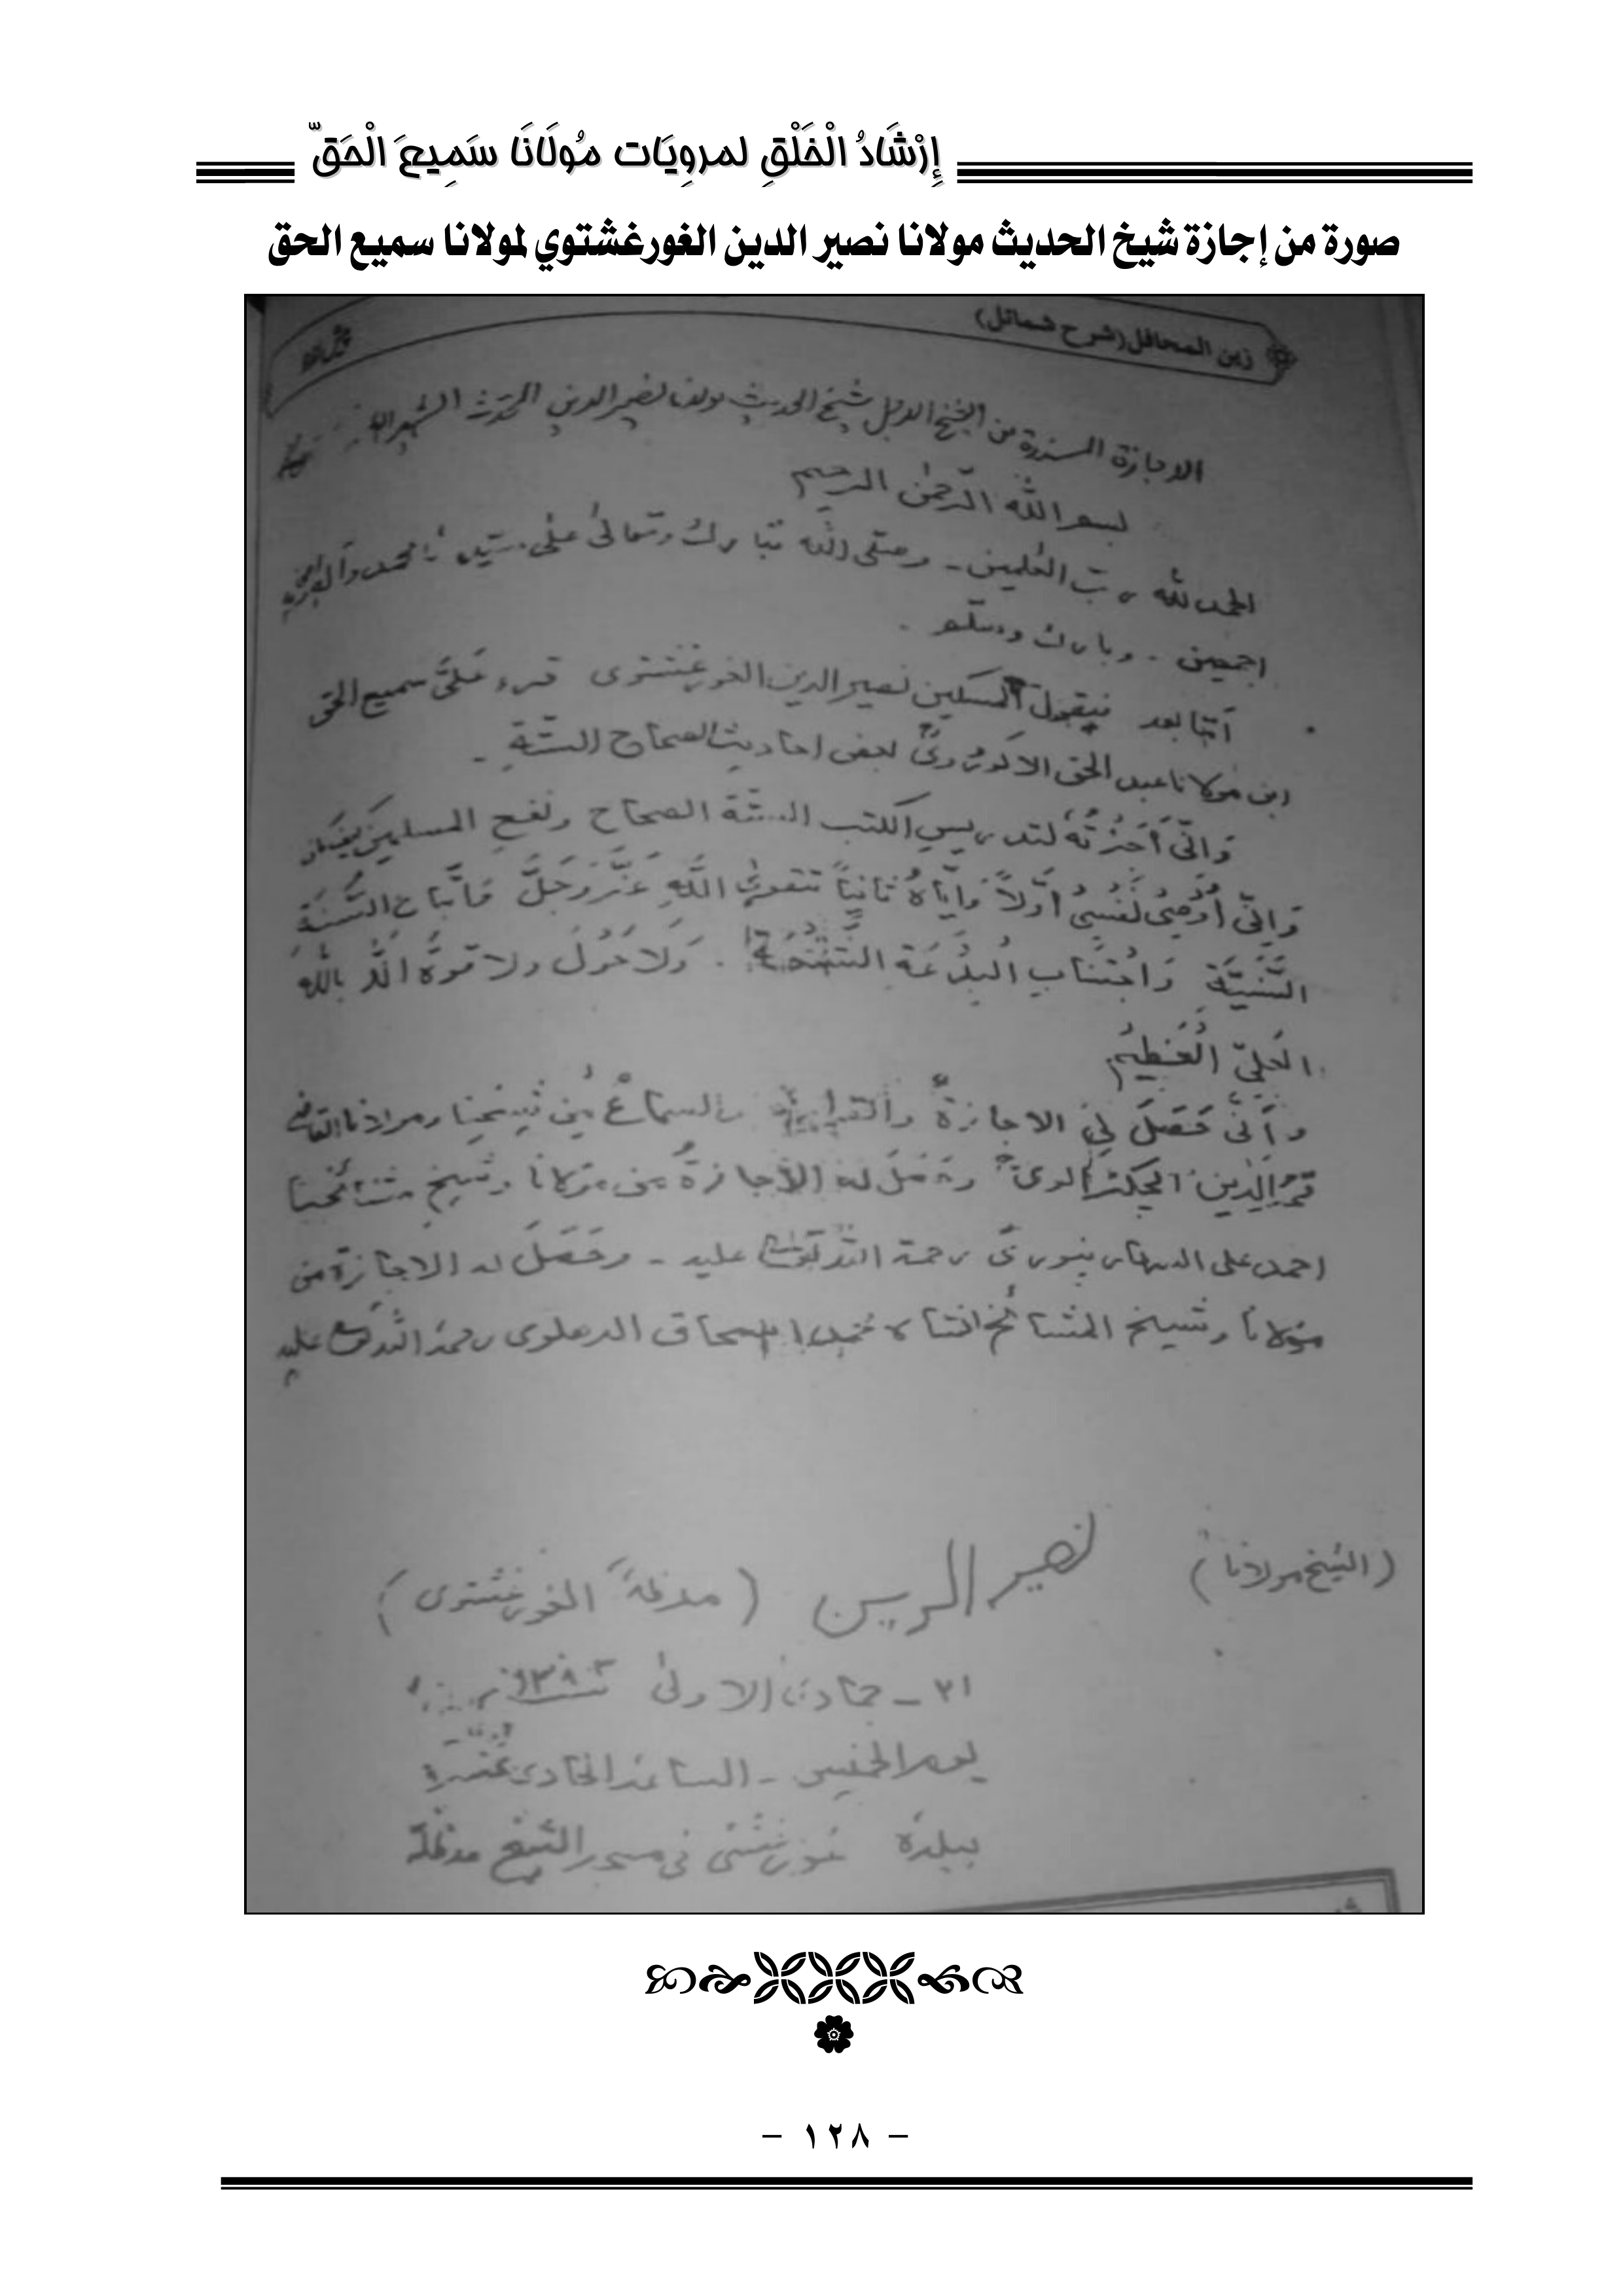 إِرْشَادُ الْخَلْقِ لمرويَات مُولَانَا سَمِيعَ الْحَقّ
صورة من إجازة شيخ الحديث مولانا نصير الدين الغورغشتوي لمولانا سميع الحق
زين المحافل (شرح شمائل)
الاجازة المسندة من الشيخ الاجل شيخ الحديث مولانا نصير الدين المحدث الشهير
بسم الله الرّحمٰن الرحيم
الحمد لله ربّ العٰلمين ـ وصلى الله تبارك وتعالىٰ علىٰ سيّدنا محمد وآله
اجمعين ـ وبارك وسلّم ـ
اَمّا بعد فيقول المسكين نصير الدين الغورغشتوى قرء عَلىَّ سميع الحق
ابن مولانا عبد الحق الاكوڑوىؒ بعض احاديث الصحاح الستّةِ ـ
وَانّى اَجَزْتُهُ لتدريس الكتب الستّة الصحاح ونفع المسلمين
وَانّى اُوْصِىْ نَفْسِىْ اوَّلاً وَايَّاهُ ثانياً بتقوىٰ اللّٰهِ عَزَّ وَجَلَّ وَاتّباعِ السُّنَّةِ
السَّنِيَّةِ وَاجْتنَابِ الْبِدْعَةِ . وَلا حَوْلَ ولا قوةَ الّا باللهِ
العَلِىّ الْعَظِيْمِ
وَاَنّى حَصَلَ لِىْ الاجازةُ والقراءةُ والسماعُ مِن شيخِنا ومولانا القاضى
قمر الدين الچكڑالوىؒ وحَصَلَ له الاجازةُ من مولانا وشيخِ مشائخنا
احمد على السهارنپورىّ رحمة الله تعالىٰ عليه ـ وحَصَلَ له الاجازة من
مولانا وشيخ المشائخ الشاه محمد اسحاق الدهلوى رحمة الله تعالىٰ عليه
(الشيخ مولانا) نصير الدين (مدظلهٗ الغورغشتوى)
٢١ ـ جمادى الاولىٰ ١٣٨٣
يوم الخميس ـ الساعة الحادى عشرة
ببلدة غورغشتى فى مسجد الشيخ مدظلهٗ
- ١٢٨ -